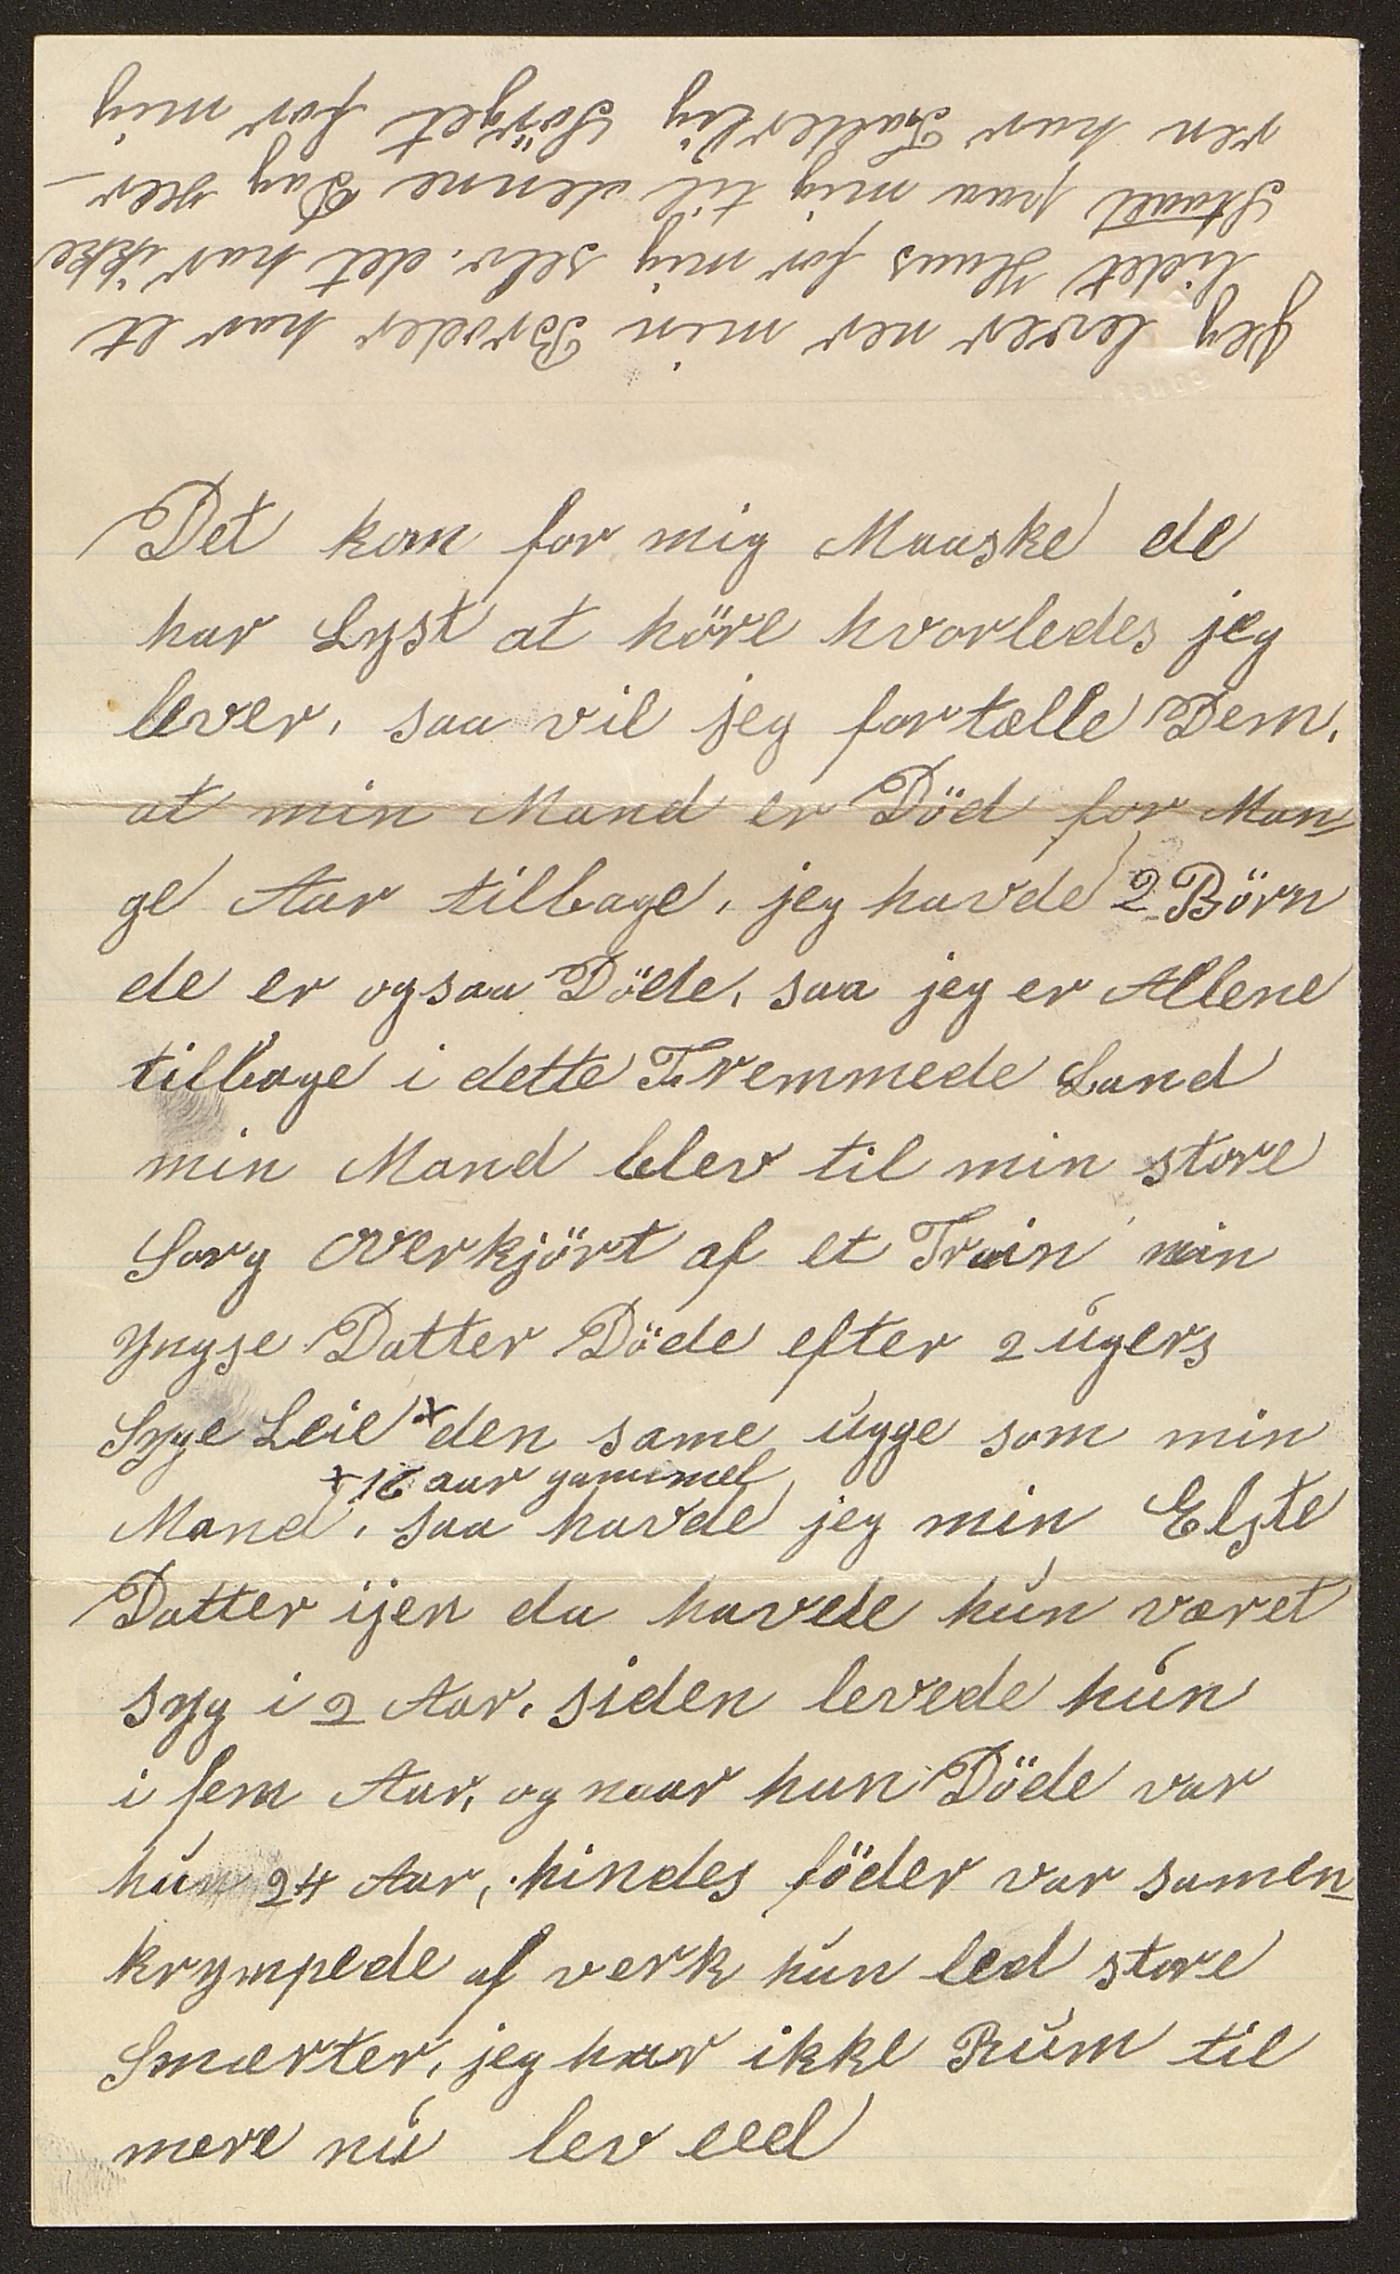 Det kom for mig Maaske de
har Lyst at höre hvorledes jeg
lever, saa vil jeg fortælle Dem,
at min Mand er Död for Man-
ge Aar tilbage, jeg havde 2 Börn
de er ogsaa Döde, saa jeg er Allene
tilbage i dette Fremmede Land
min Mand blev til min store
Sorg Overkjört af et Train min
Yngse Datter Döde efter 2 ugers
Syge Leie x den same ugge som min
x 16 aar gammel
Mand, saa havde jeg min Elste
Datter ijen da havde hun været
syg i 2 Aar, siden levede hun
i fem Aar, og naar hun Döde var
hun 24 Aar, hindes föder var samen-
krympede af verk hun led store
Smærter, jeg har ikke Rum til
mere nu lev vel
Jeg lever ner min Broder har et
lidet Huus for mig selv, det har ikke
Staaet paa mig til denne Dag Her-
ren har Faderlig Sörget for mig